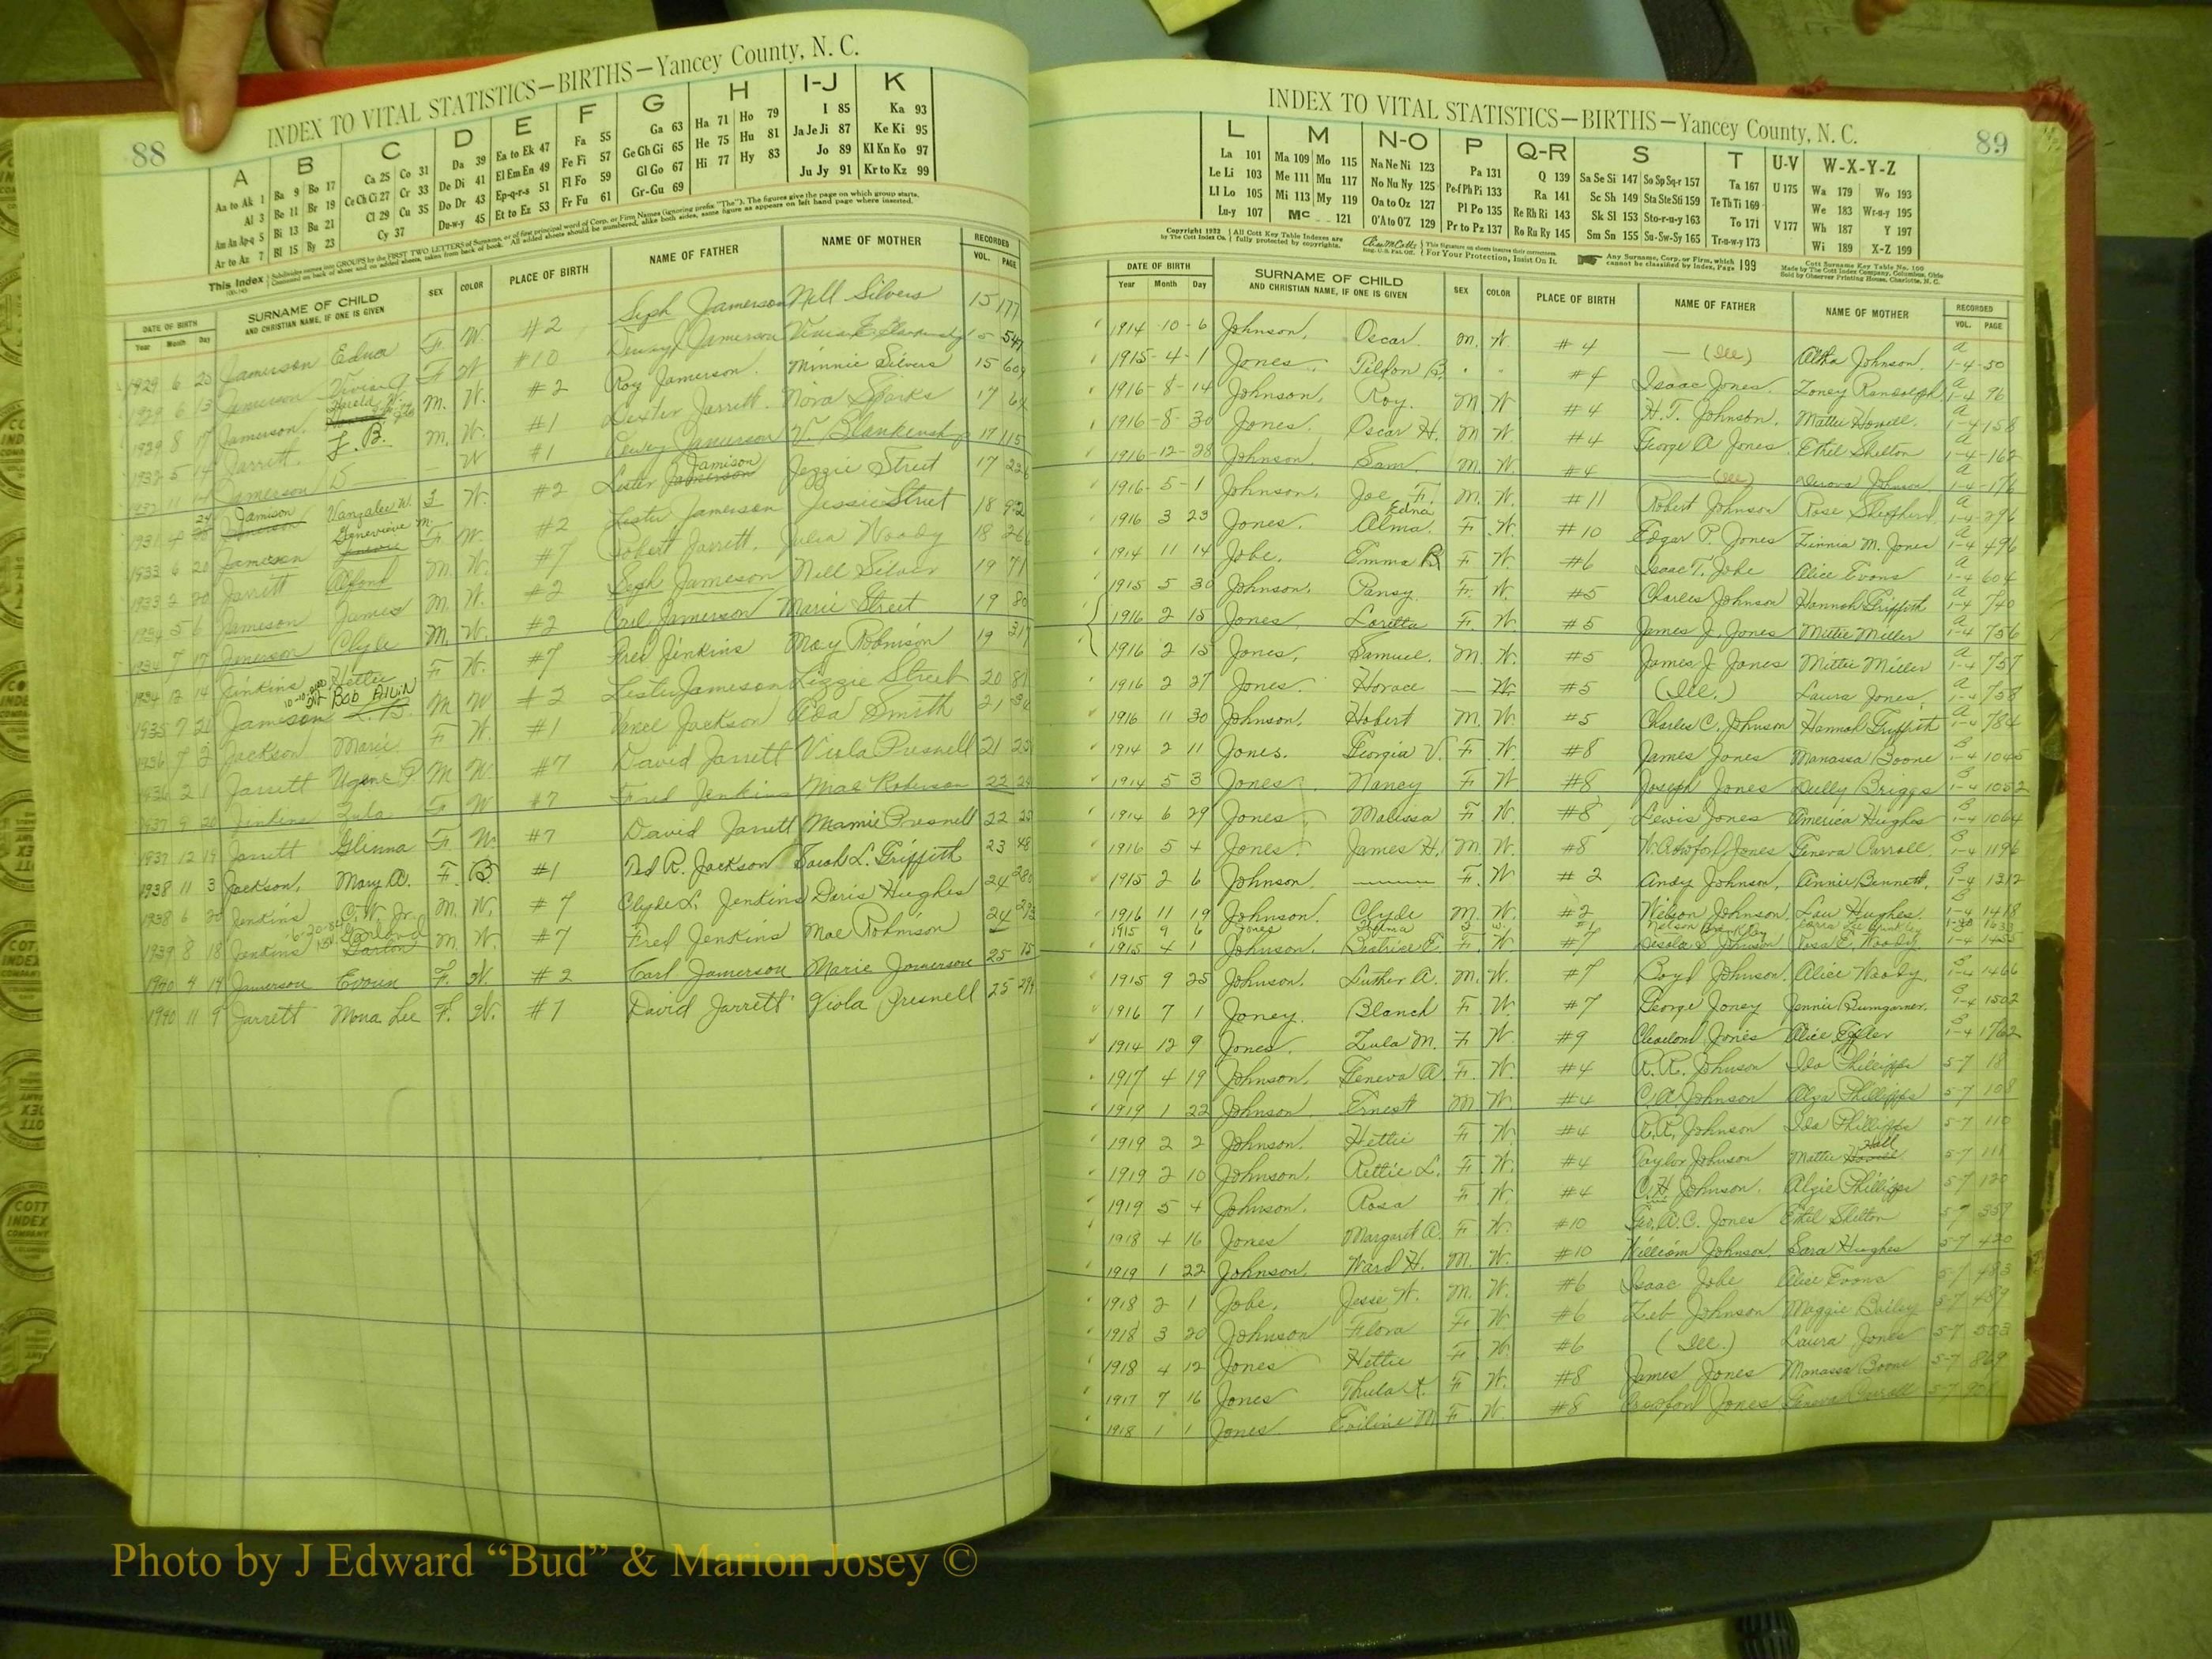 88
INDEX TO VITAL STATISTICS—BIRTHS—Yancey County, N. C.
A B C D E F G H I-J K
Aa to Ak 1 Ba 9 Bo 17 Ca 25 Co 31 Da 39 Ea to Ek 47 Fa 55 Ga 63 Ha 71 Ho 79 I 85 Ka 93
Al 3 Be 11 Br 19 Ce Ch Ci 27 Cr 33 De Di 41 El Em En 49 Fe Fi 57 Ge Gh Gi 65 He 75 Hu 81 Ja Je Ji 87 Ke Ki 95
Am An Ap-q 5 Bi 13 Bu 21 Cl 29 Cu 35 Do Dr 43 Ep-q-r-s 51 Fl Fo 59 Gl Go 67 Hi 77 Hy 83 Jo 89 Kl Kn Ko 97
Ar to Az 7 Bl 15 By 23 Cy 37 Du-w-y 45 Et to Ez 53 Fr Fu 61 Gr-Gu 69 Ju Jy 91 Kr to Kz 99
This Index
DATE OF BIRTH SURNAME OF CHILD SEX COLOR PLACE OF BIRTH NAME OF FATHER NAME OF MOTHER RECORDED
Year Month Day AND CHRISTIAN NAME, IF ONE IS GIVEN VOL. PAGE
1929 6 20 Jamerson Edna F. W. #2 Seph Jamerson Nell Silvers 15 177
1929 6 13 Jamerson F W #10 Dewey Jamerson 547
1929 8 17 Jamerson. Harold M. W. #2 Roy Jamerson. Minnie Silvers 15 609
1932 5 14 Jarrett. J. B. M. W. #1 Dexter Jarrett. Nora Sparks 17
1932 11 Jamerson W #1 Dewey Jamerson V. Blankenship 17 115
1931 Jamison Vangalee W. W. #2 Lester Jamison Jezzie Street 17
1933 6 20 Jameson Genevieve M. F W. #2 Lester Jamerson Jessie Street 18 92
1933 2 20 Jarrett M. W. #7 Robert Jarrett. Julia Woody 18
1934 5 6 Jameson James M. W. #2 Seph Jameson Nell Silver 19 71
1934 7 17 Jenerson Clyde M. W. #2 Carl Jamerson Marie Street 19 80
1934 12 14 Jenkins Hettie F W. #7 Fred Jenkins May Robinson 19
1935 7 20 Jameson Bob Allin M W #2 Lester Jameson Lizzie Street 20
1936 7 2 Jackson Marie F W. #1 Vance Jackson Ada Smith 21
1936 2 1 Jarrett M W. #7 David Jarrett Viola Presnell 21
1937 9 20 Jenkins Zula F W #7 Fred Jenkins Mae Roberson 22
1937 12 19 Jarrett Glenna F W. #7 David Jarrett Mamie Presnell 22
1938 11 3 Jackson, Mary A. F. B. #1 Ted R. Jackson Sarah L. Griffith 23 48
1938 6 Jenkins C. W. Jr. M. W. #7 Clyde L. Jenkins Doris Hughes 24
1939 8 18 Jenkins Garland M. W. #7 Fred Jenkins Mae Robinson 24
1940 4 14 Jamerson F. W. #2 Carl Jamerson Marie Jamerson 25
1940 11 9 Jarrett Mona Lee F. W. #7 David Jarrett Viola Presnell 25
INDEX TO VITAL STATISTICS—BIRTHS—Yancey County, N. C.
89
L M N-O P Q-R S T U-V W-X-Y-Z
La 101 Ma 109 Mo 115 Na Ne Ni 123 Pa 131 Q 139 Sa Se Si 147 So Sp Sq-r 157 Ta 167 U 175 Wa 179 Wo 193
Le Li 103 Me 111 Mu 117 No Nu Ny 125 Pe-f Ph Pi 133 Ra 141 Sc Sh 149 Sta Ste Sti 159 Te Th Ti 169 We 183 Wr-u-y 195
Ll Lo 105 Mi 113 My 119 Oa to Oz 127 Pl Po 135 Re Rh Ri 143 Sk Sl 153 Sto-r-u-y 163 To 171 V 177 Wh 187 Y 197
Lu-y 107 Mc 121 O'A to O'Z 129 Pr to Pz 137 Ro Ru Ry 145 Sm Sn 155 Su-Sw-Sy 165 Tr-u-w-y 173 Wi 189 X-Z 199
Copyright 1933 by The Cott Index Co. All Cott Key Table Indexes are fully protected by copyrights. For Your Protection, Insist On It. Any Surname, Corp. or Firm, which cannot be classified by Index, Page 199
DATE OF BIRTH SURNAME OF CHILD SEX COLOR PLACE OF BIRTH NAME OF FATHER NAME OF MOTHER RECORDED
Year Month Day AND CHRISTIAN NAME, IF ONE IS GIVEN VOL. PAGE
1914 10 6 Johnson, Oscar. M. W. #4 (Ill) Johnson. A 1-4 50
1915 4 1 Jones. B. #4 Isaac Jones. Zoney Randolph A 1-4 96
1916 8 14 Johnson, Roy. M W #4 H. T. Johnson. Mattie Howell. A 1-4 158
1916 8 30 Jones. Oscar H. M W. #4 George A Jones. Ethel Shelton A 1-4 162
1916 12 28 Johnson. Sam. M. W. #4 (Ill) Johnson A 1-4 176
1916 5 1 Johnson, Joe F. M. W. #11 Robert Johnson Rose Shepherd A 1-4 296
1916 3 23 Jones. Alma Edna F. W. #10 Edgar P. Jones Zinnia M. Jones A 1-4 496
1914 11 14 Jobe, Emma R F W. #6 Isaac T. Jobe Alice Evans A 1-4 604
1915 5 30 Johnson, Pansy. F. W. #5 Charles Johnson Hannah Griffith A 1-4 740
1916 2 15 Jones, Loretta F. W. #5 James J. Jones Mittie Miller A 1-4 756
1916 2 15 Jones, Samuel. M. W. #5 James J. Jones Mittie Miller A 1-4 757
1916 2 27 Jones. Horace — W. #5 (Ill.) Laura Jones. A 1-4 758
1916 11 30 Johnson, Hobert M. W. #5 Charles C. Johnson Hannah Griffith A 1-4 784
1914 2 11 Jones. Georgia V. F. W. #8 James Jones Manassa Boone B 1-4 1045
1914 5 3 Jones. Nancy F W #8 Joseph Jones Dully Briggs B 1-4 1052
1914 6 29 Jones. Malissa F. W. #8 Lewis Jones America Hughes B 1-4 1064
1916 5 4 Jones. James H. M. W. #8 Jones Geneva Carroll. B 1-4 1196
1915 2 6 Johnson. F. W #2 Andy Johnson, Annie Bennett, B 1-4 1312
1916 11 19 Johnson. Clyde M. W. #2 Wilson Johnson. Hughes. 1-4 1418
1915 9 6 Jones #1 Nelson
1915 4 1 Johnson. Beatrice E. F. W #7 Johnson Rosa E. Woody 1-4 1455
1915 9 25 Johnson. Luther A. M. W. #7 Boyd Johnson. Alice Woody B 1-4 1466
1916 7 1 Joney. Blanch F. W #7 George Joney Jennie Bumgarner. B 1-4 1502
1914 12 9 Jones. Lula M. F W. #9 Cleveland Jones Alice B 1-4 1762
1917 4 19 Johnson. Geneva A. F. W. #4 R. R. Johnson Ida Phillipps 5-7 18
1919 1 22 Johnson. Ernest M W. #4 C. A. Johnson Phillipps 5-7 108
1919 2 2 Johnson. Hettie F. W. #4 R. R. Johnson Ida Phillipps 5-7 110
1919 2 10 Johnson. Rettie L. F. W. #4 Taylor Johnson Mattie Hall 5-7 111
1919 5 4 Johnson. Rosa F W. #4 C. H Johnson. Algie Phillipps 5-7 120
1918 4 16 Jones Margaret A. F. W. #10 Geo. A. C. Jones Ethel Shelton 5-7 357
1919 1 22 Johnson. Ward H. M. W. #10 William Johnson. Sara Hughes 5-7 420
1918 2 1 Jobe, Jesse W. M. W. #6 Isaac Jobe Alice Evans 5-7 483
1918 3 20 Johnson Flora F W #6 Zeb Johnson Maggie Bailey 5-7
1918 4 12 Jones Hettie F. W. #6 (Ill.) Laura Jones 5-7 503
1917 7 16 Jones F W. #8 James Jones Manassa Boone 5-7 869
1918 1 1 Jones. F W. #8 Jones Geneva Carroll 5-7
Photo by J Edward “Bud” & Marion Josey ©